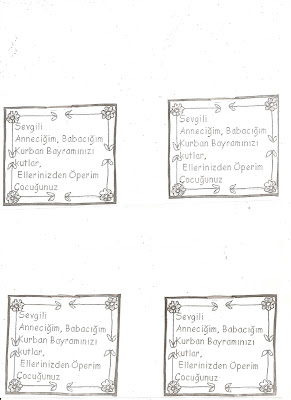 Sevgili
Anneciğim, Babacığım
Kurban Bayramınızı
kutlar,
Ellerinizden Öperim
Çocuğunuz
Sevgili
Anneciğim, Babacığım
Kurban Bayramınızı
kutlar,
Ellerinizden Öperim
Çocuğunuz
Sevgili
Anneciğim, Babacığım
Kurban Bayramınızı
kutlar,
Ellerinizden Öperim
Çocuğunuz
Sevgili
Anneciğim, Babacığım
Kurban Bayramınızı
kutlar,
Ellerinizden Öperim
Çocuğunuz